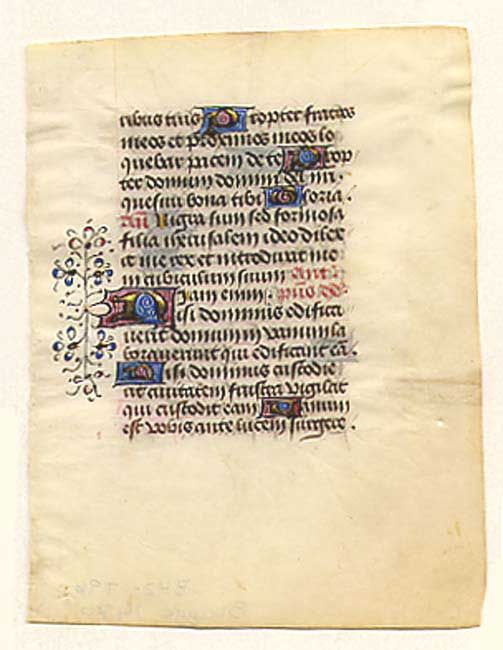 tibus tuis Propter fratres
meos et proximos meos lo
quebar pacem de te Prop
ter domum domini dei nri
quesivi bona tibi Gloria.
Añ Nigra sum sed formosa
filia iherusalem ideo dilex
it me rex et introduxit me
in cubiculum suum Ant
Iam enim. psus dd
Nisi dominus edifica
verit domum in vanum la
boraverunt qui edificant eā.
Nisi dominus custodie
rit civitatem frustra vigilat
qui custodit eam Vanum
est vobis ante lucem surgere.